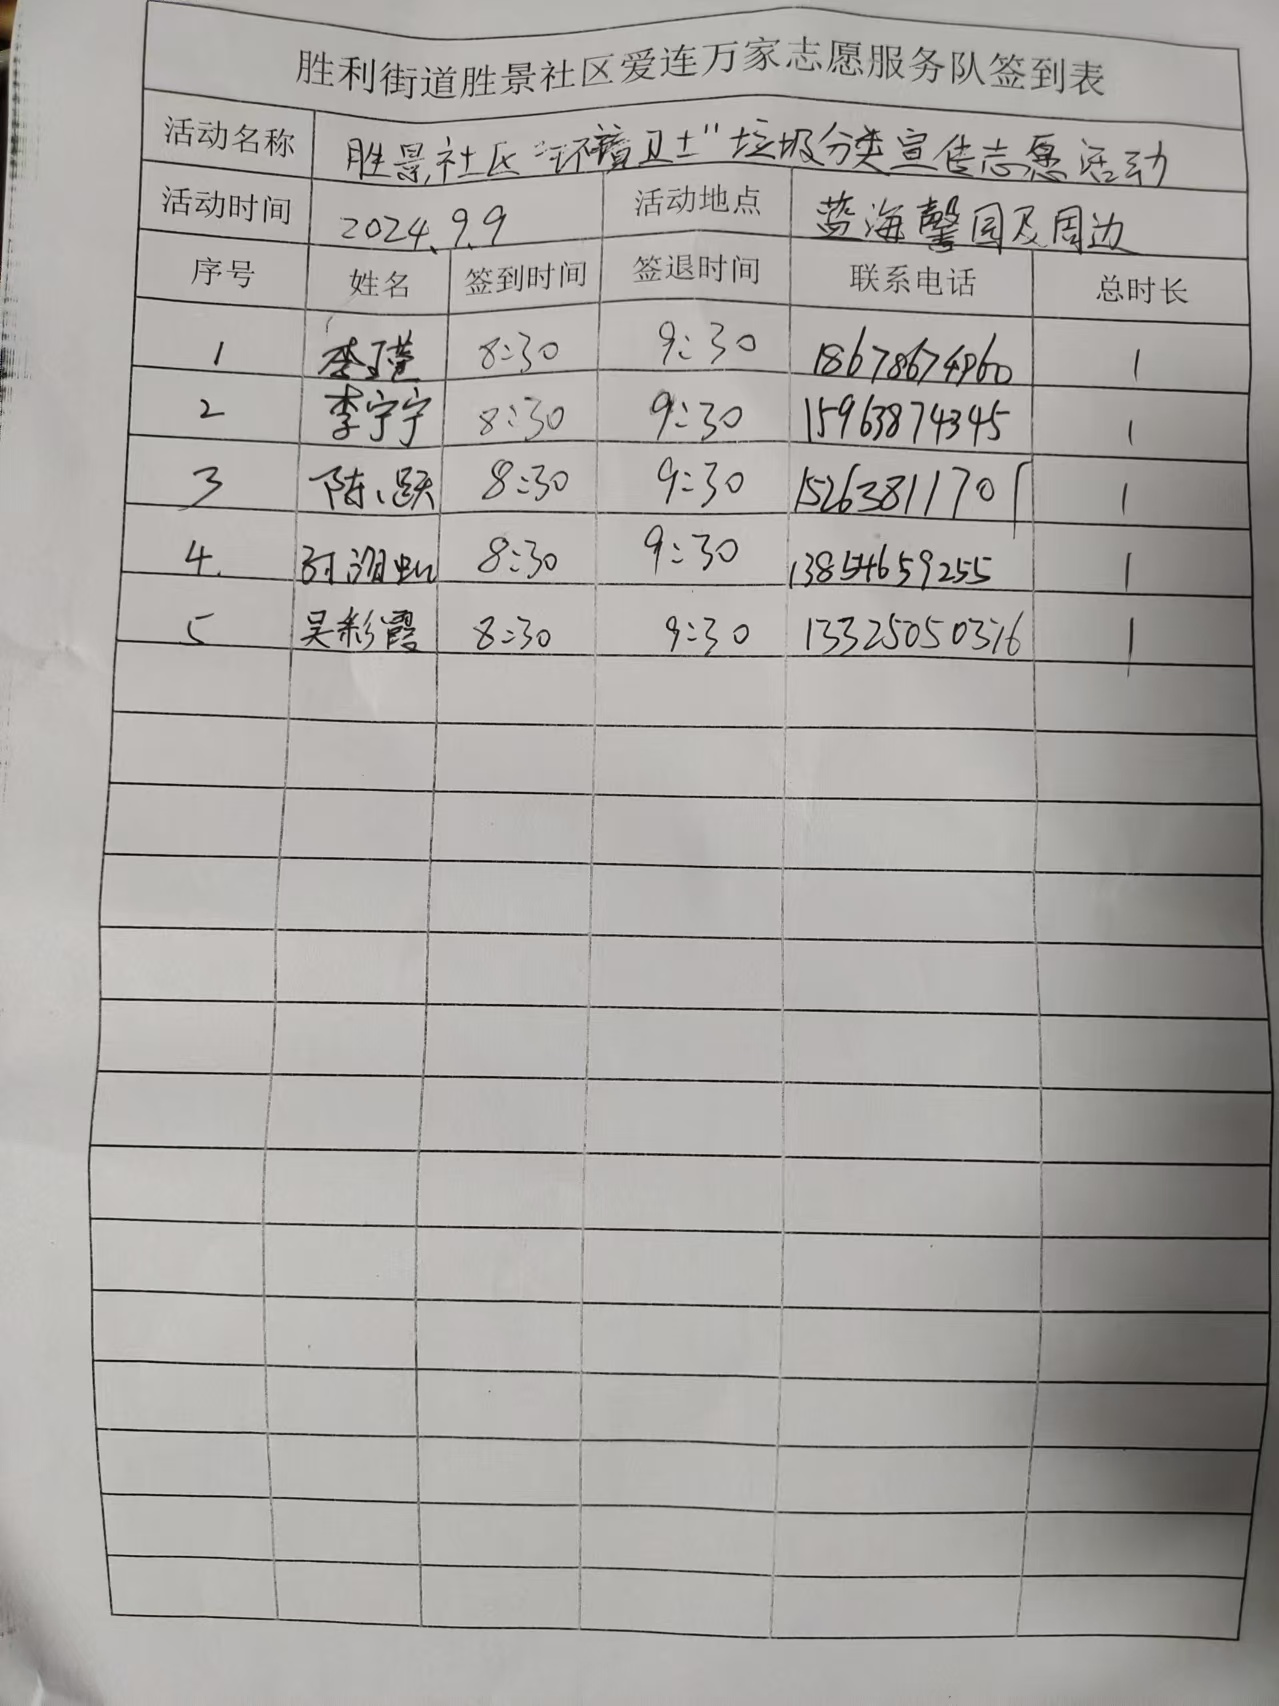 胜利街道胜景社区爱连万家志愿服务队签到表
活动名称 胜景社区“环境卫士”垃圾分类宣传志愿活动
活动时间 2024.9.9 活动地点 蓝海馨园及周边
序号 姓名 签到时间 签退时间 联系电话 总时长
1 8:30 9:30 18678674960 1
2 李宁宁 8:30 9:30 15963874345 1
3 陈跃 8:30 9:30 15263811701 1
4. 8:30 9:30 13854659255 1
5 吴彩霞 8:30 9:30 1